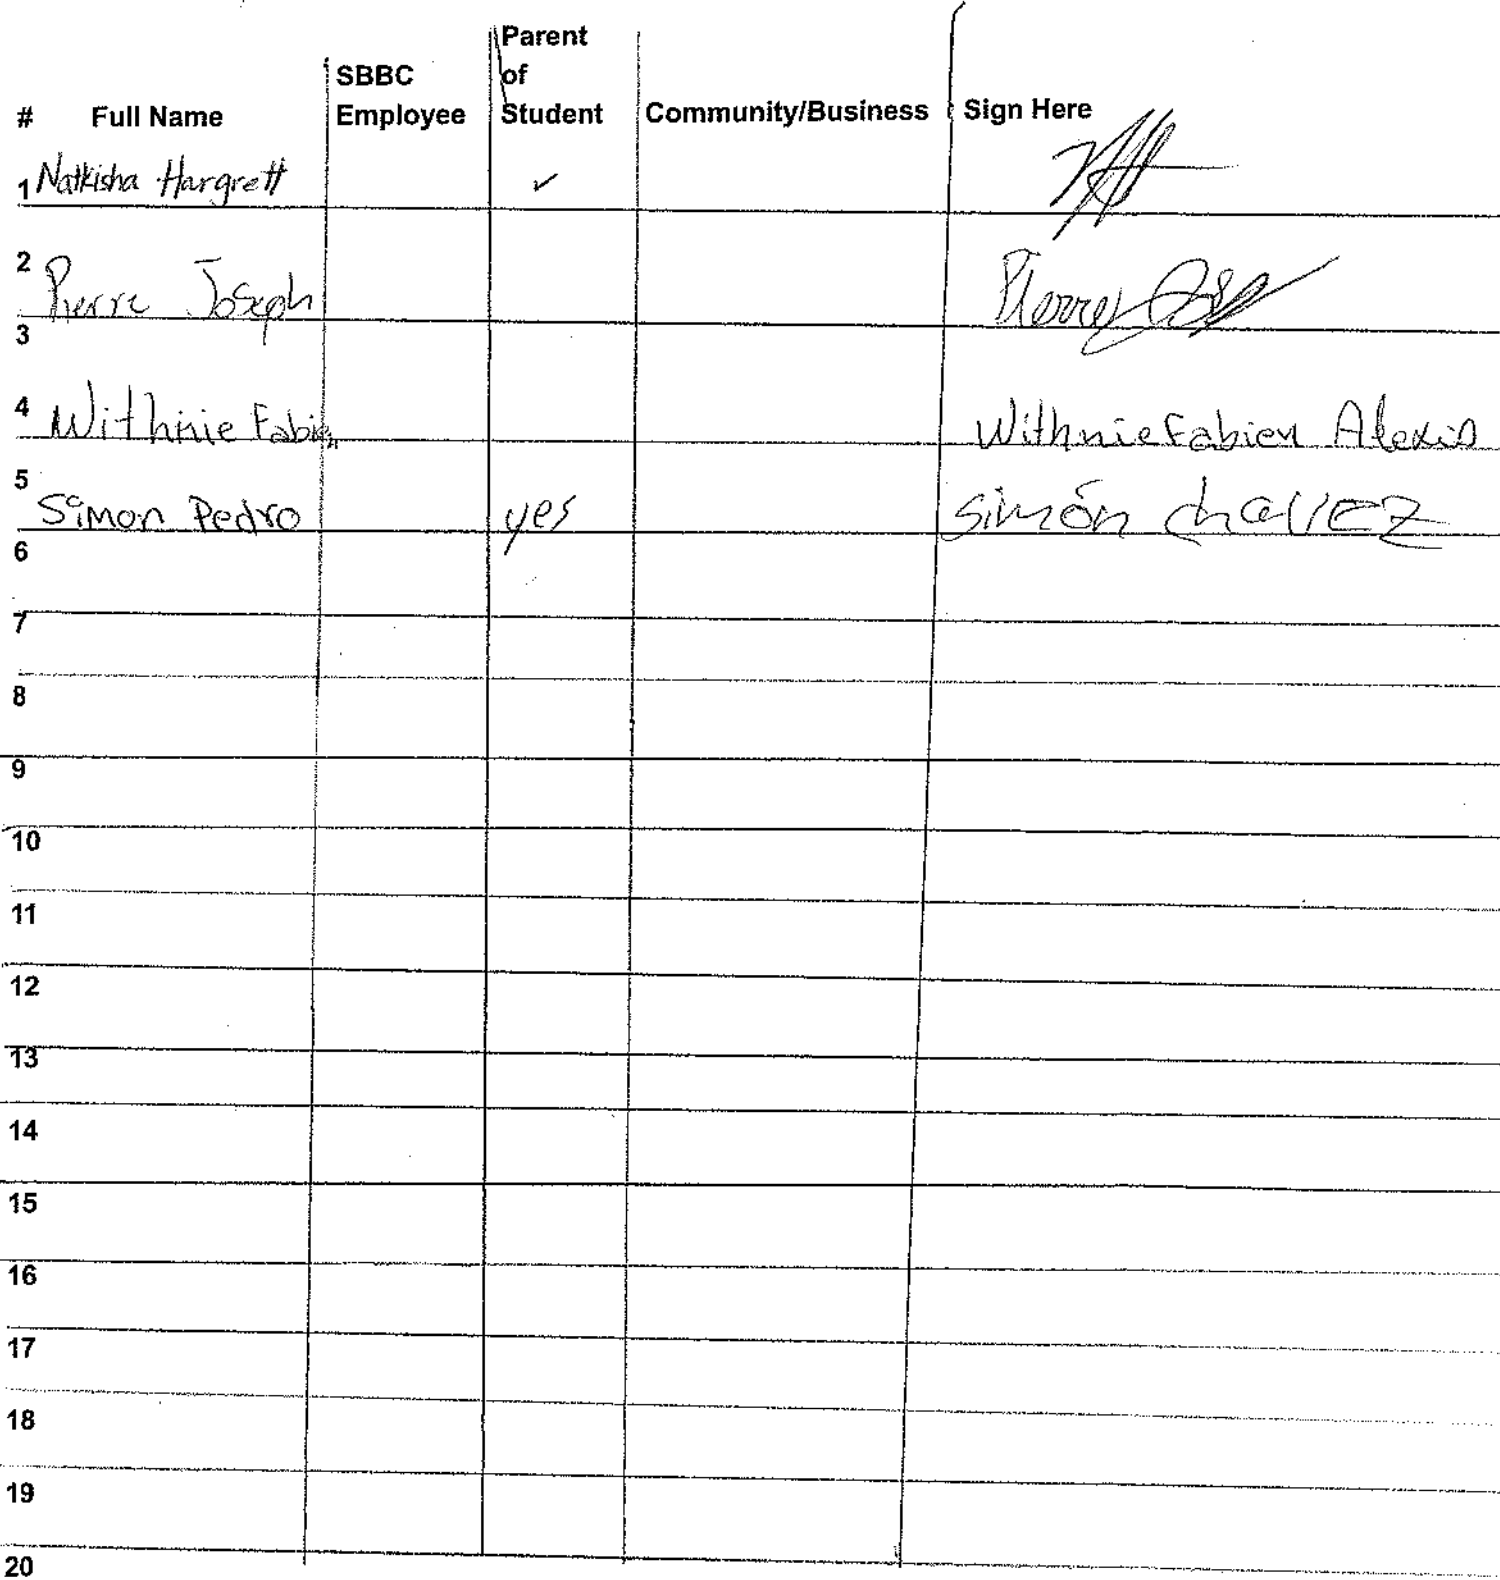 Parent
SBBC of
# Full Name Employee Student Community/Business Sign Here
1 Natkisha Hargrett ✓
2 Pierre Joseph Pierre
3
4 Withnie Fabien Withnie Fabien Alexis
5 Simon Pedro yes simón chavez
6
7
8
9
10
11
12
13
14
15
16
17
18
19
20